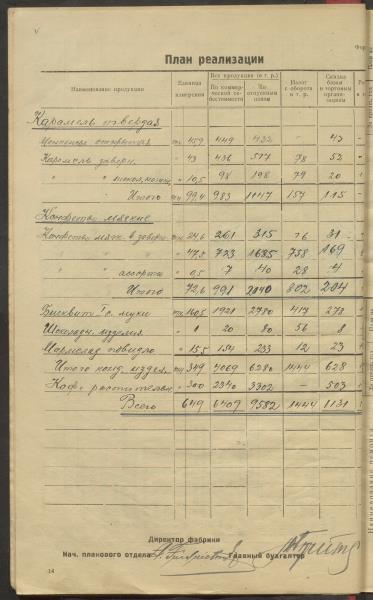 План реализации
Наименование продукции Единица измерения Вся продукция (в т. р.) По коммерческой себестоимости По отпускным ценам Налог с оборота в т. р. Скидка базам и торговым организациям
Карамель твердая
открытая тн 459 449 432 — 43
Карамель заверн. " 43 436 517 78 52
" " " 10,5 98 198 79 20
Итого тн 99,4 983 1147 157 115
Конфекты мягкие
Конфекты мягк. в заверн. тн 24,6 261 315 16 31
" " " 47,5 723 1685 758 169
" " ассорти " 0,5 7 40 28 4
Итого 72,6 991 2040 802 204
Бисквит I с. муки тн 160,5 1921 2780 413 278
Шоколадн. изделия " 1 20 80 56 8
Мармелад повидло " 15,5 154 233 12 23
Итого конд. издел. тн 349 4069 6280 1444 628
Коф. растительн. " 300 2340 3302 — 503
Всего 649 6409 9582 1444 1131
Директор фабрики
Нач. планового отдела Главный бухгалтер
14